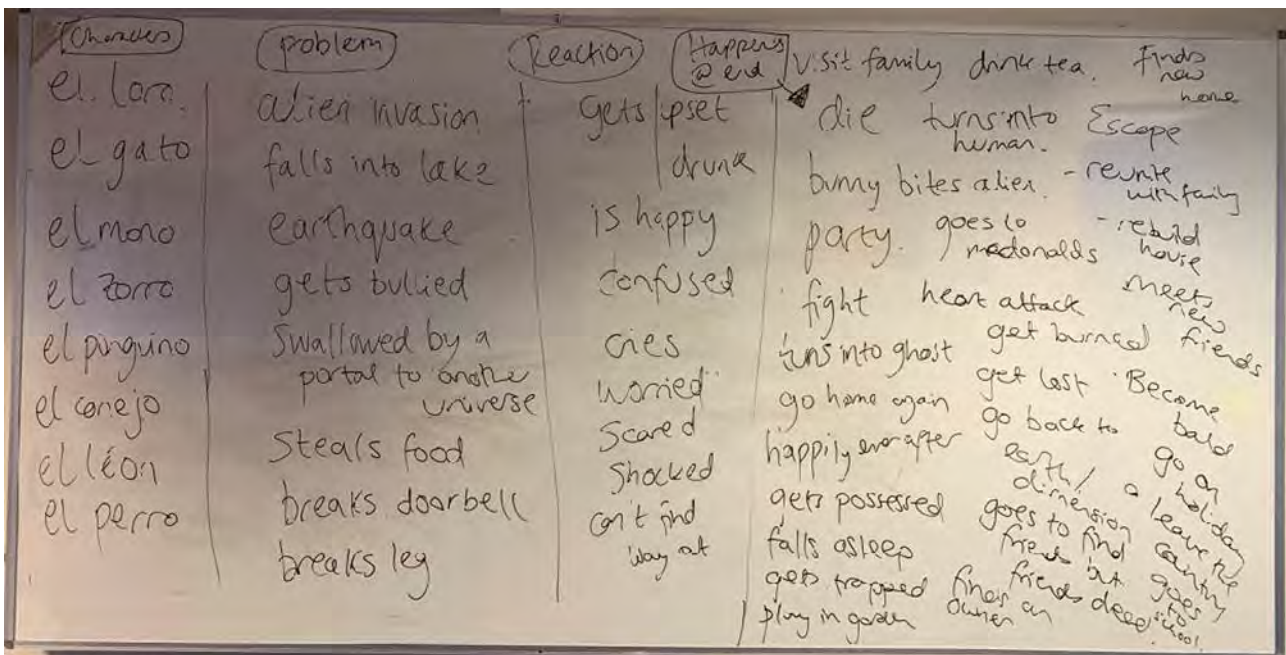 Characters
el loro
el gato
el mono
el zorro
el pinguino
el conejo
el léon
el perro
problem
alien invasion
falls into lake
earthquake
gets bullied
Swallowed by a
portal to another
universe
Steals food
breaks doorbell
breaks leg
Reaction
gets upset
drunk
is happy
confused
cries
worried
Scared
Shocked
can't find
way out
Happens
@ end
visit family drink tea.
Finds
new
home
die turns into
human.
Escape
bunny bites alien.
- reunite
with family
party. goes to
mcdonalds
- rebuild
house
fight heart attack
meets
new
friends
turns into ghost get burned
go home again get lost
Become
bald
happily ever after go back to
earth /
dimension
go on
a holiday
leave the
country
gets possessed goes to find
friends but
friends dead.
goes
to
school.
falls asleep
gets trapped finds an
owner
play in garden